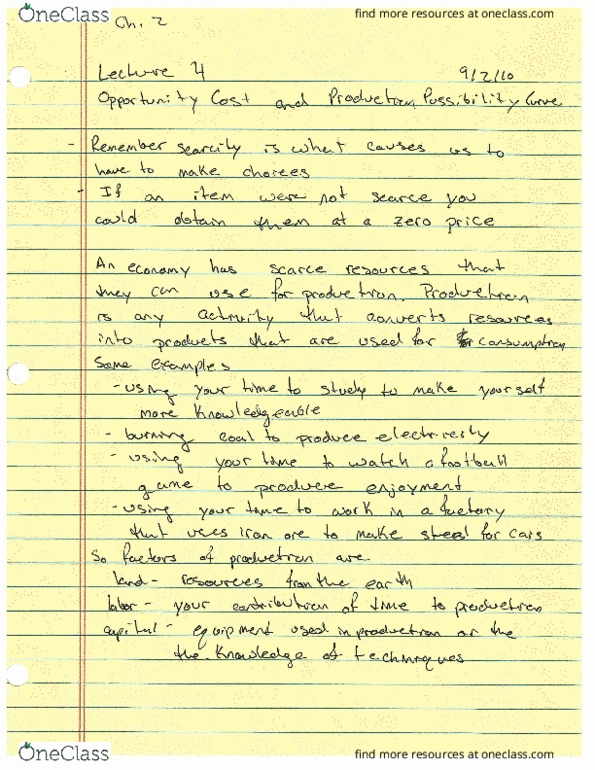 OneClass
find more resources at oneclass.com
Ch. 2
Lecture 4 9/2/10
Opportunity Cost and Production Possibility Curve
- Remember scarcity is what causes us to
have to make choices
- If an item were not scarce you
could obtain them at a zero price
An economy has scarce resources that
they can use for production. Production
is any activity that converts resources
into products that are used for consumption
Some examples
- using your time to study to make yourself
more knowledgeable
- burning coal to produce electricity
- using your time to watch a football
game to produce enjoyment
- using your time to work in a factory
that uses iron ore to make steel for cars
So factors of production are
land - resources from the earth
labor - your contribution of time to production
capital - equipment used in production or the
the knowledge of techniques
OneClass
find more resources at oneclass.com